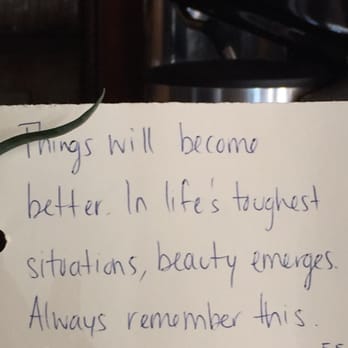 Things will become
better. In life's toughest
situations, beauty emerges.
Always remember this.